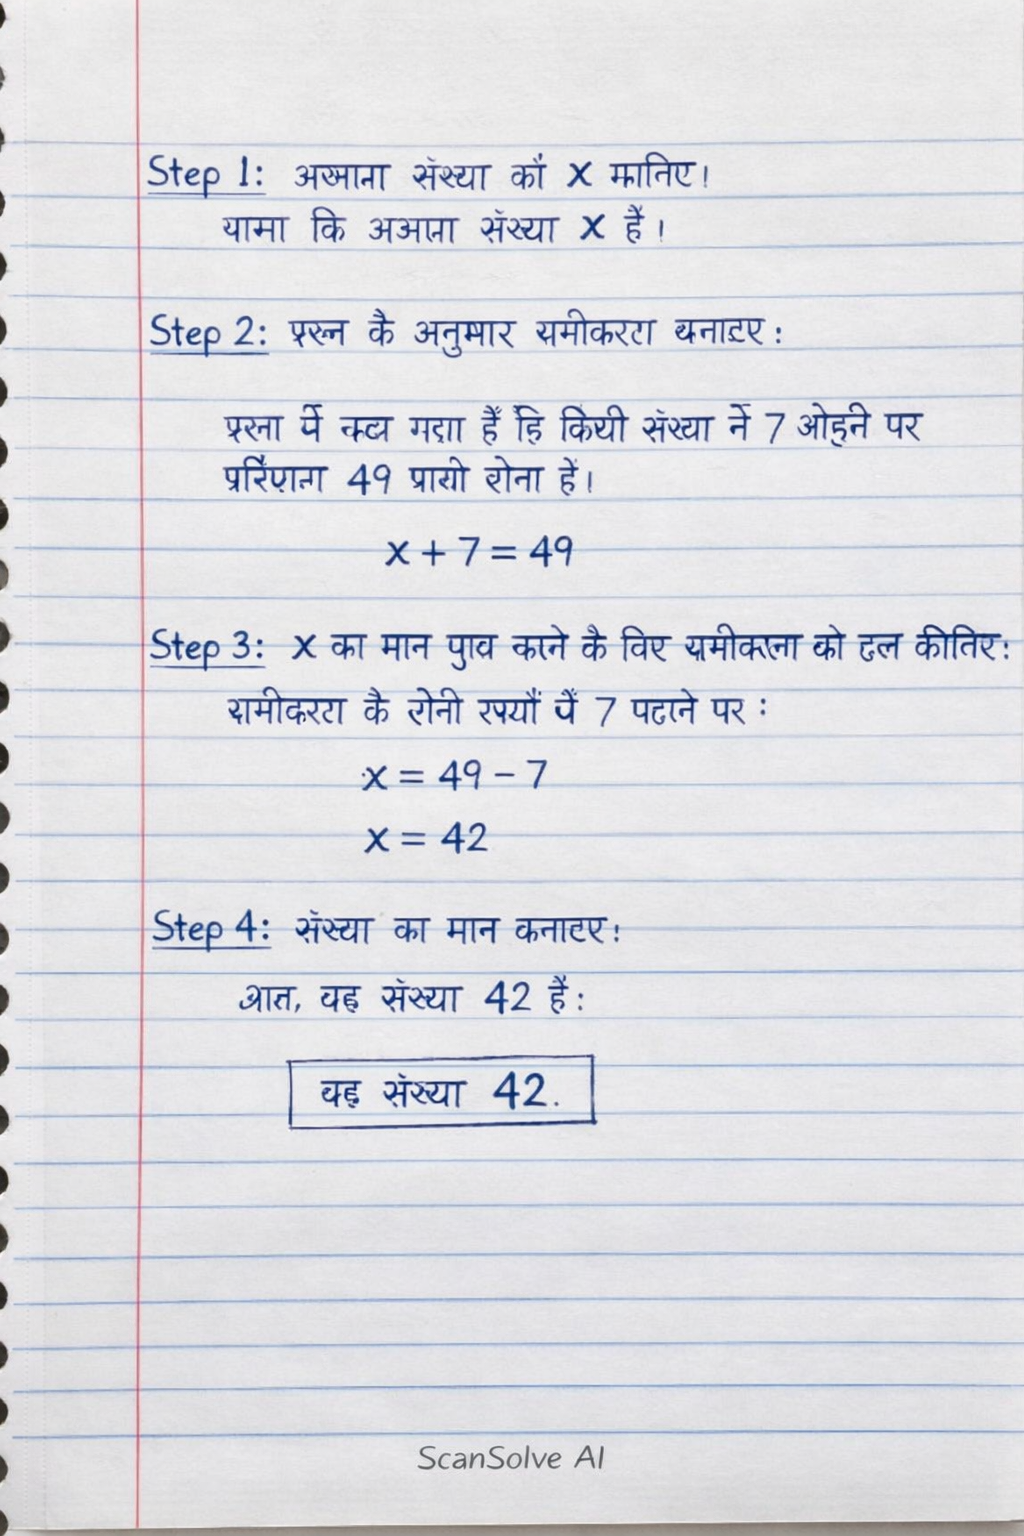 Step 1: अज्ञाना संख्या कों x मानिए।
यामा कि अआता संख्या x है।
Step 2: प्रस्न कै अनुमार यमीकरटा बनाटए:
प्ररना में कव्य गद्या हैं हि कियी संख्या नें 7 ओड़ने पर
49 प्रायो रोना हैं।
x + 7 = 49
Step 3: x का मान काने कै विए को ढल कीतिए:
यामीकरटा कै रोनी 7 पटाने पर :
x = 49 - 7
x = 42
Step 4: संख्या का मान कनाटए:
आत, वह संख्या 42 हैं:
वह संख्या 42.
ScanSolve AI